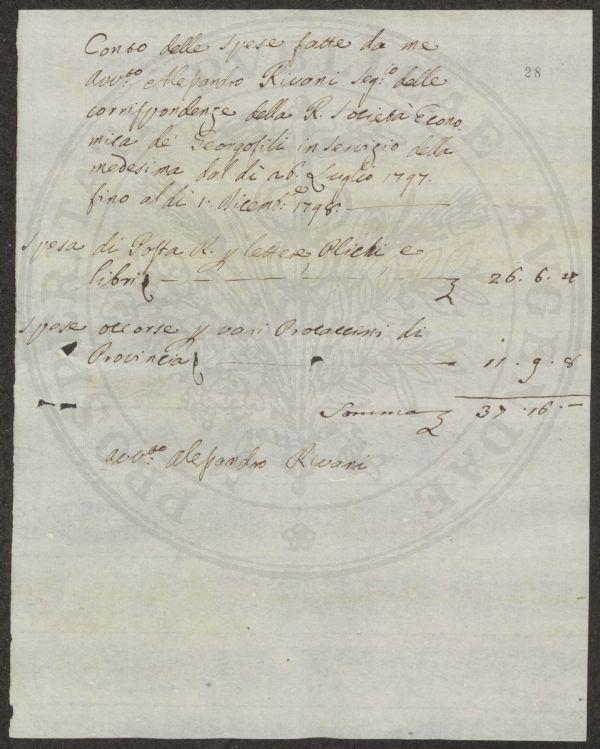 Conto delle Spese fatte da me
Avv.to Alessandro Rivani Seg.o delle
28
corrispondenze della R. Società Econo,
mica de' Georgofili in servizio della
medesima dal dì 26. Luglio 1797.
fino al dì 1. Dicemb.e 1798.
Spesa di Posta R. p lettere, Plichi, e
libri 26. 6.
Spese occorse p vari Procaccini di
Provincia 11. 9. 8
Somma 37. 16. —
Avv.to Alessandro Rivani
PROSPERITATI PUBLICAE AUGENDAE